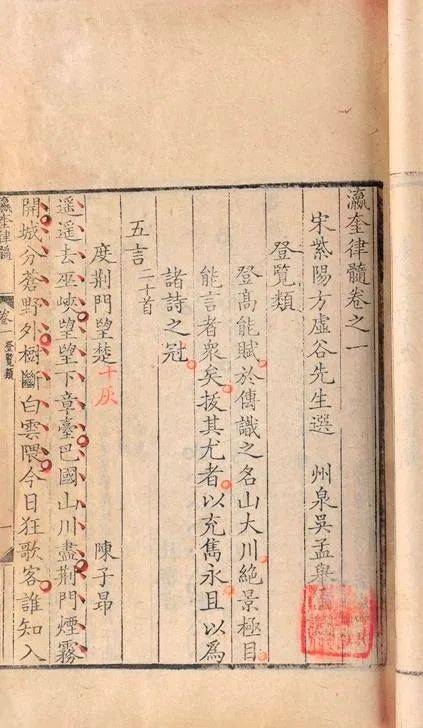 瀛奎律髓卷之一
宋紫陽方虛谷先生選　州泉吳孟舉
登覽類
登髙能賦於傳識之名山大川絶景極目
能言者衆矣拔其尤者以充雋永且以為
諸詩之冠
五言二十首
度荆門望楚十灰　陳子昂
遥遥去巫峽望望下章臺巴國山川盡荆門煙霧
開城分蒼野外樹斷白雲隈今日狂歌客誰知入
瀛奎律髓　卷一　登覽類